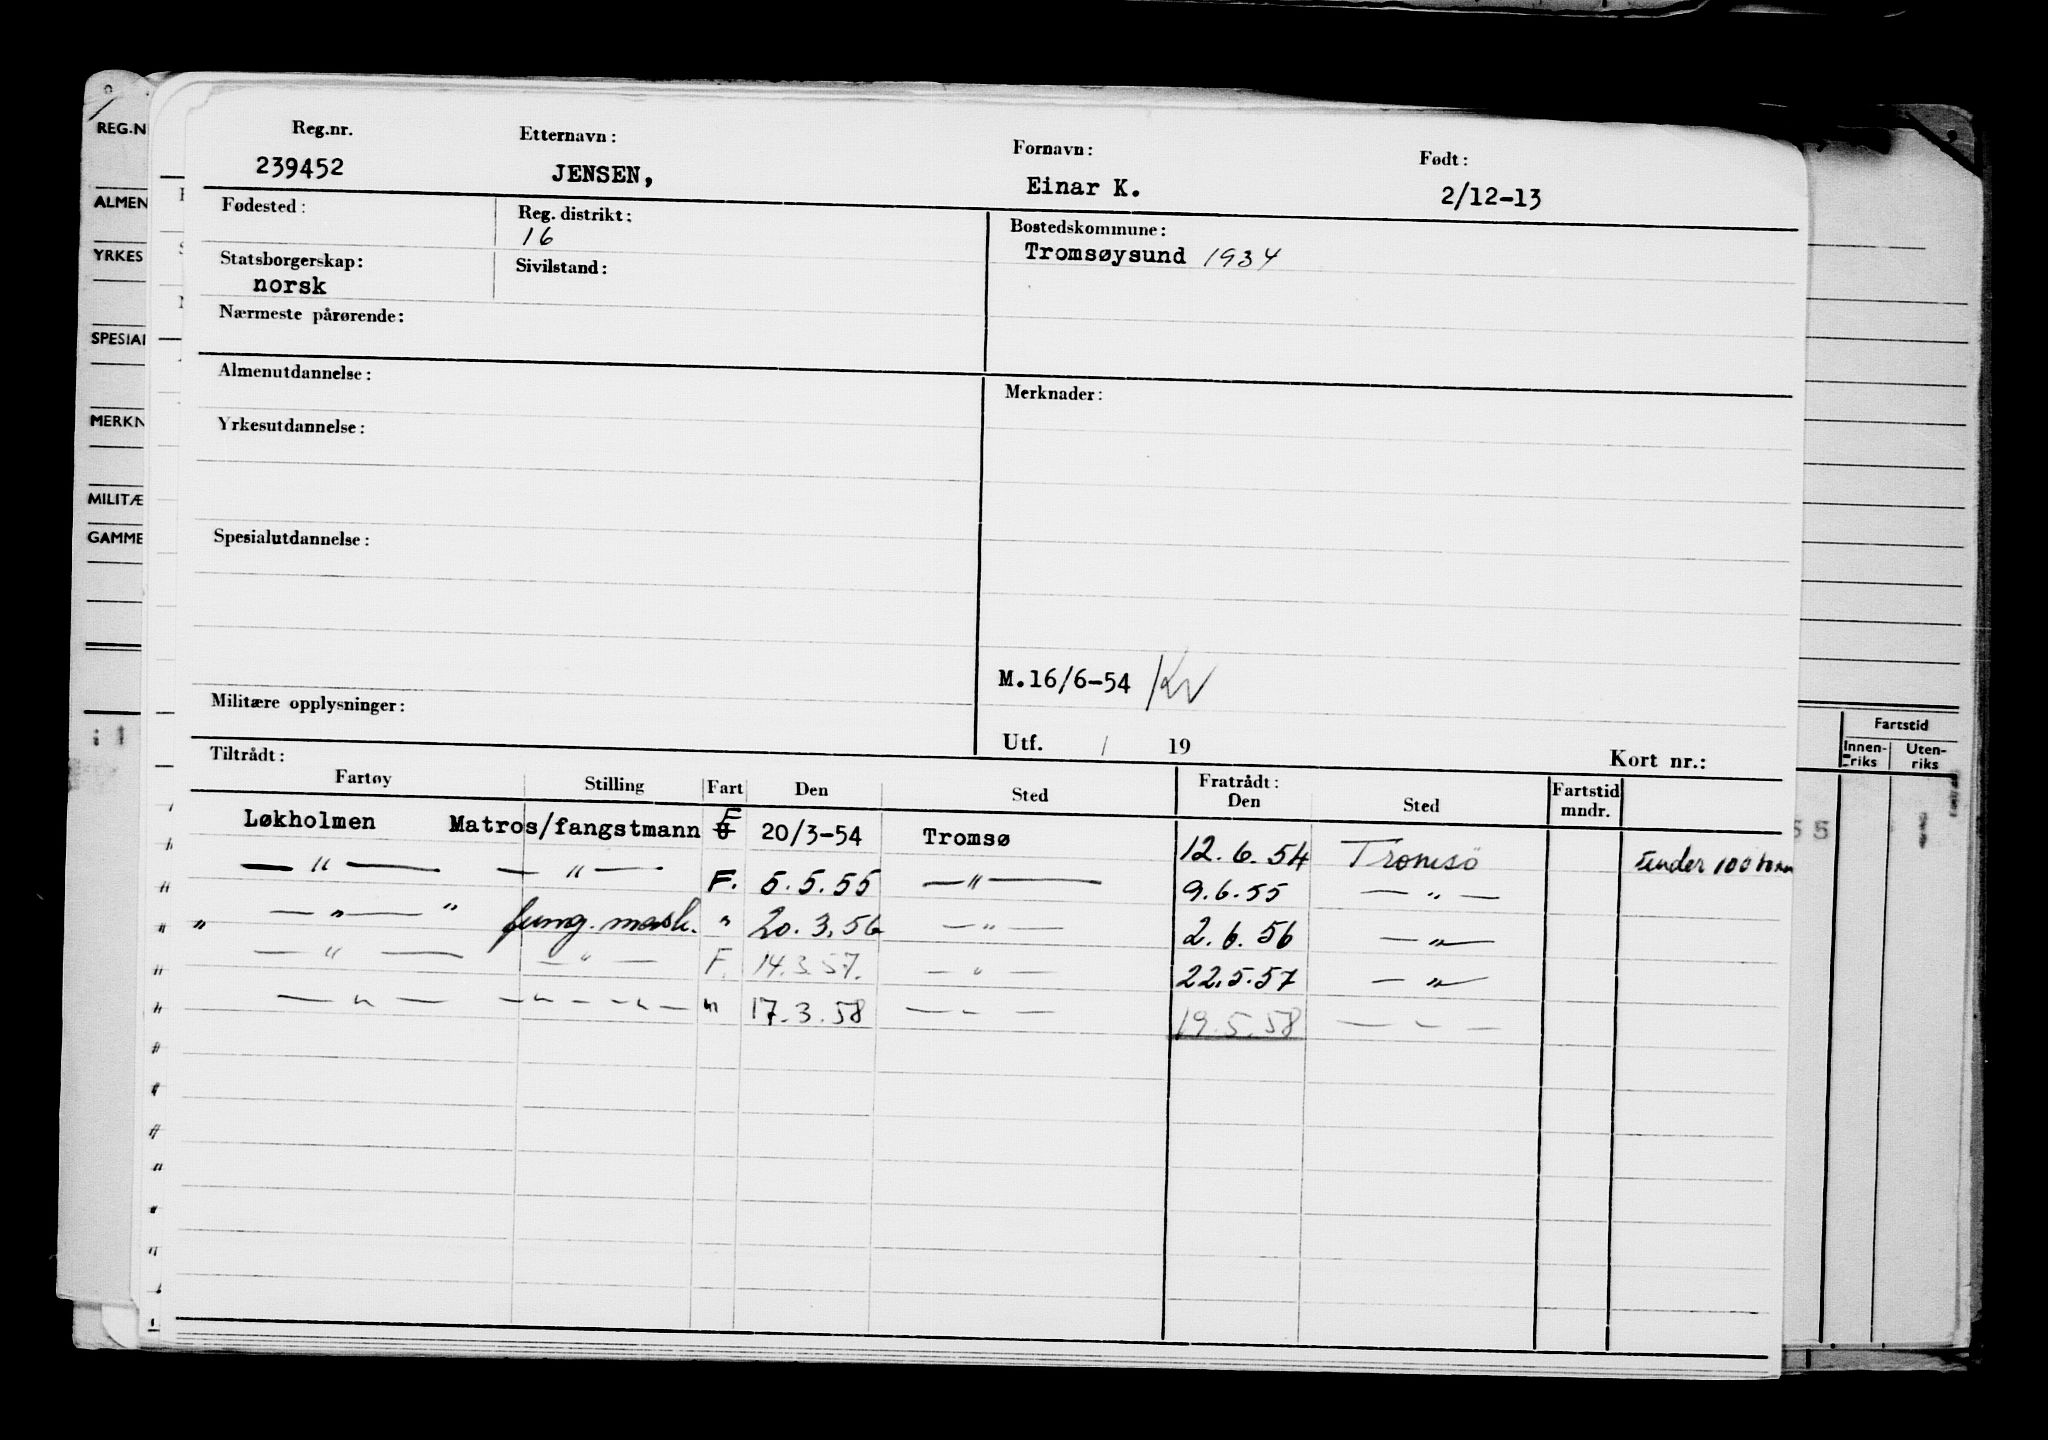 REG.N
ALMEN
YRKES
SPESIAL
MERKN
MILITÆ
GAMME
Reg.nr. Etternavn: Fornavn: Født:
239452 JENSEN, Einar K. 2/12-13
Fødested: Reg. distrikt: Bostedskommune:
16 Tromsøysund 1934
Statsborgerskap: Sivilstand:
norsk
Nærmeste pårørende:
Almenutdannelse: Merknader:
Yrkesutdannelse:
Spesialutdannelse:
M.16/6-54 Kv
Militære opplysninger:
Utf. / 19 Kort nr.:
Tiltrådt: Fratrådt: Fartstid
Fartøy Stilling Fart Den Sted Den Sted mndr.
Løkholmen Matros/fangstmann F 20/3-54 Tromsø 12.6.54 Tromsö under 100 tonn
— " — — " — F. 5.5.55 — " — 9.6.55 — " —
" — " — " fung. mask. " 20.3.56 — " — 2.6.56 — " —
— " — — " — F. 14.3.57. — " — 22.5.57 — " —
— " — — " — — " — " 17.3.58 — - — 19.5.58 — - —
Fartstid
Innen-riks Uten-riks
55